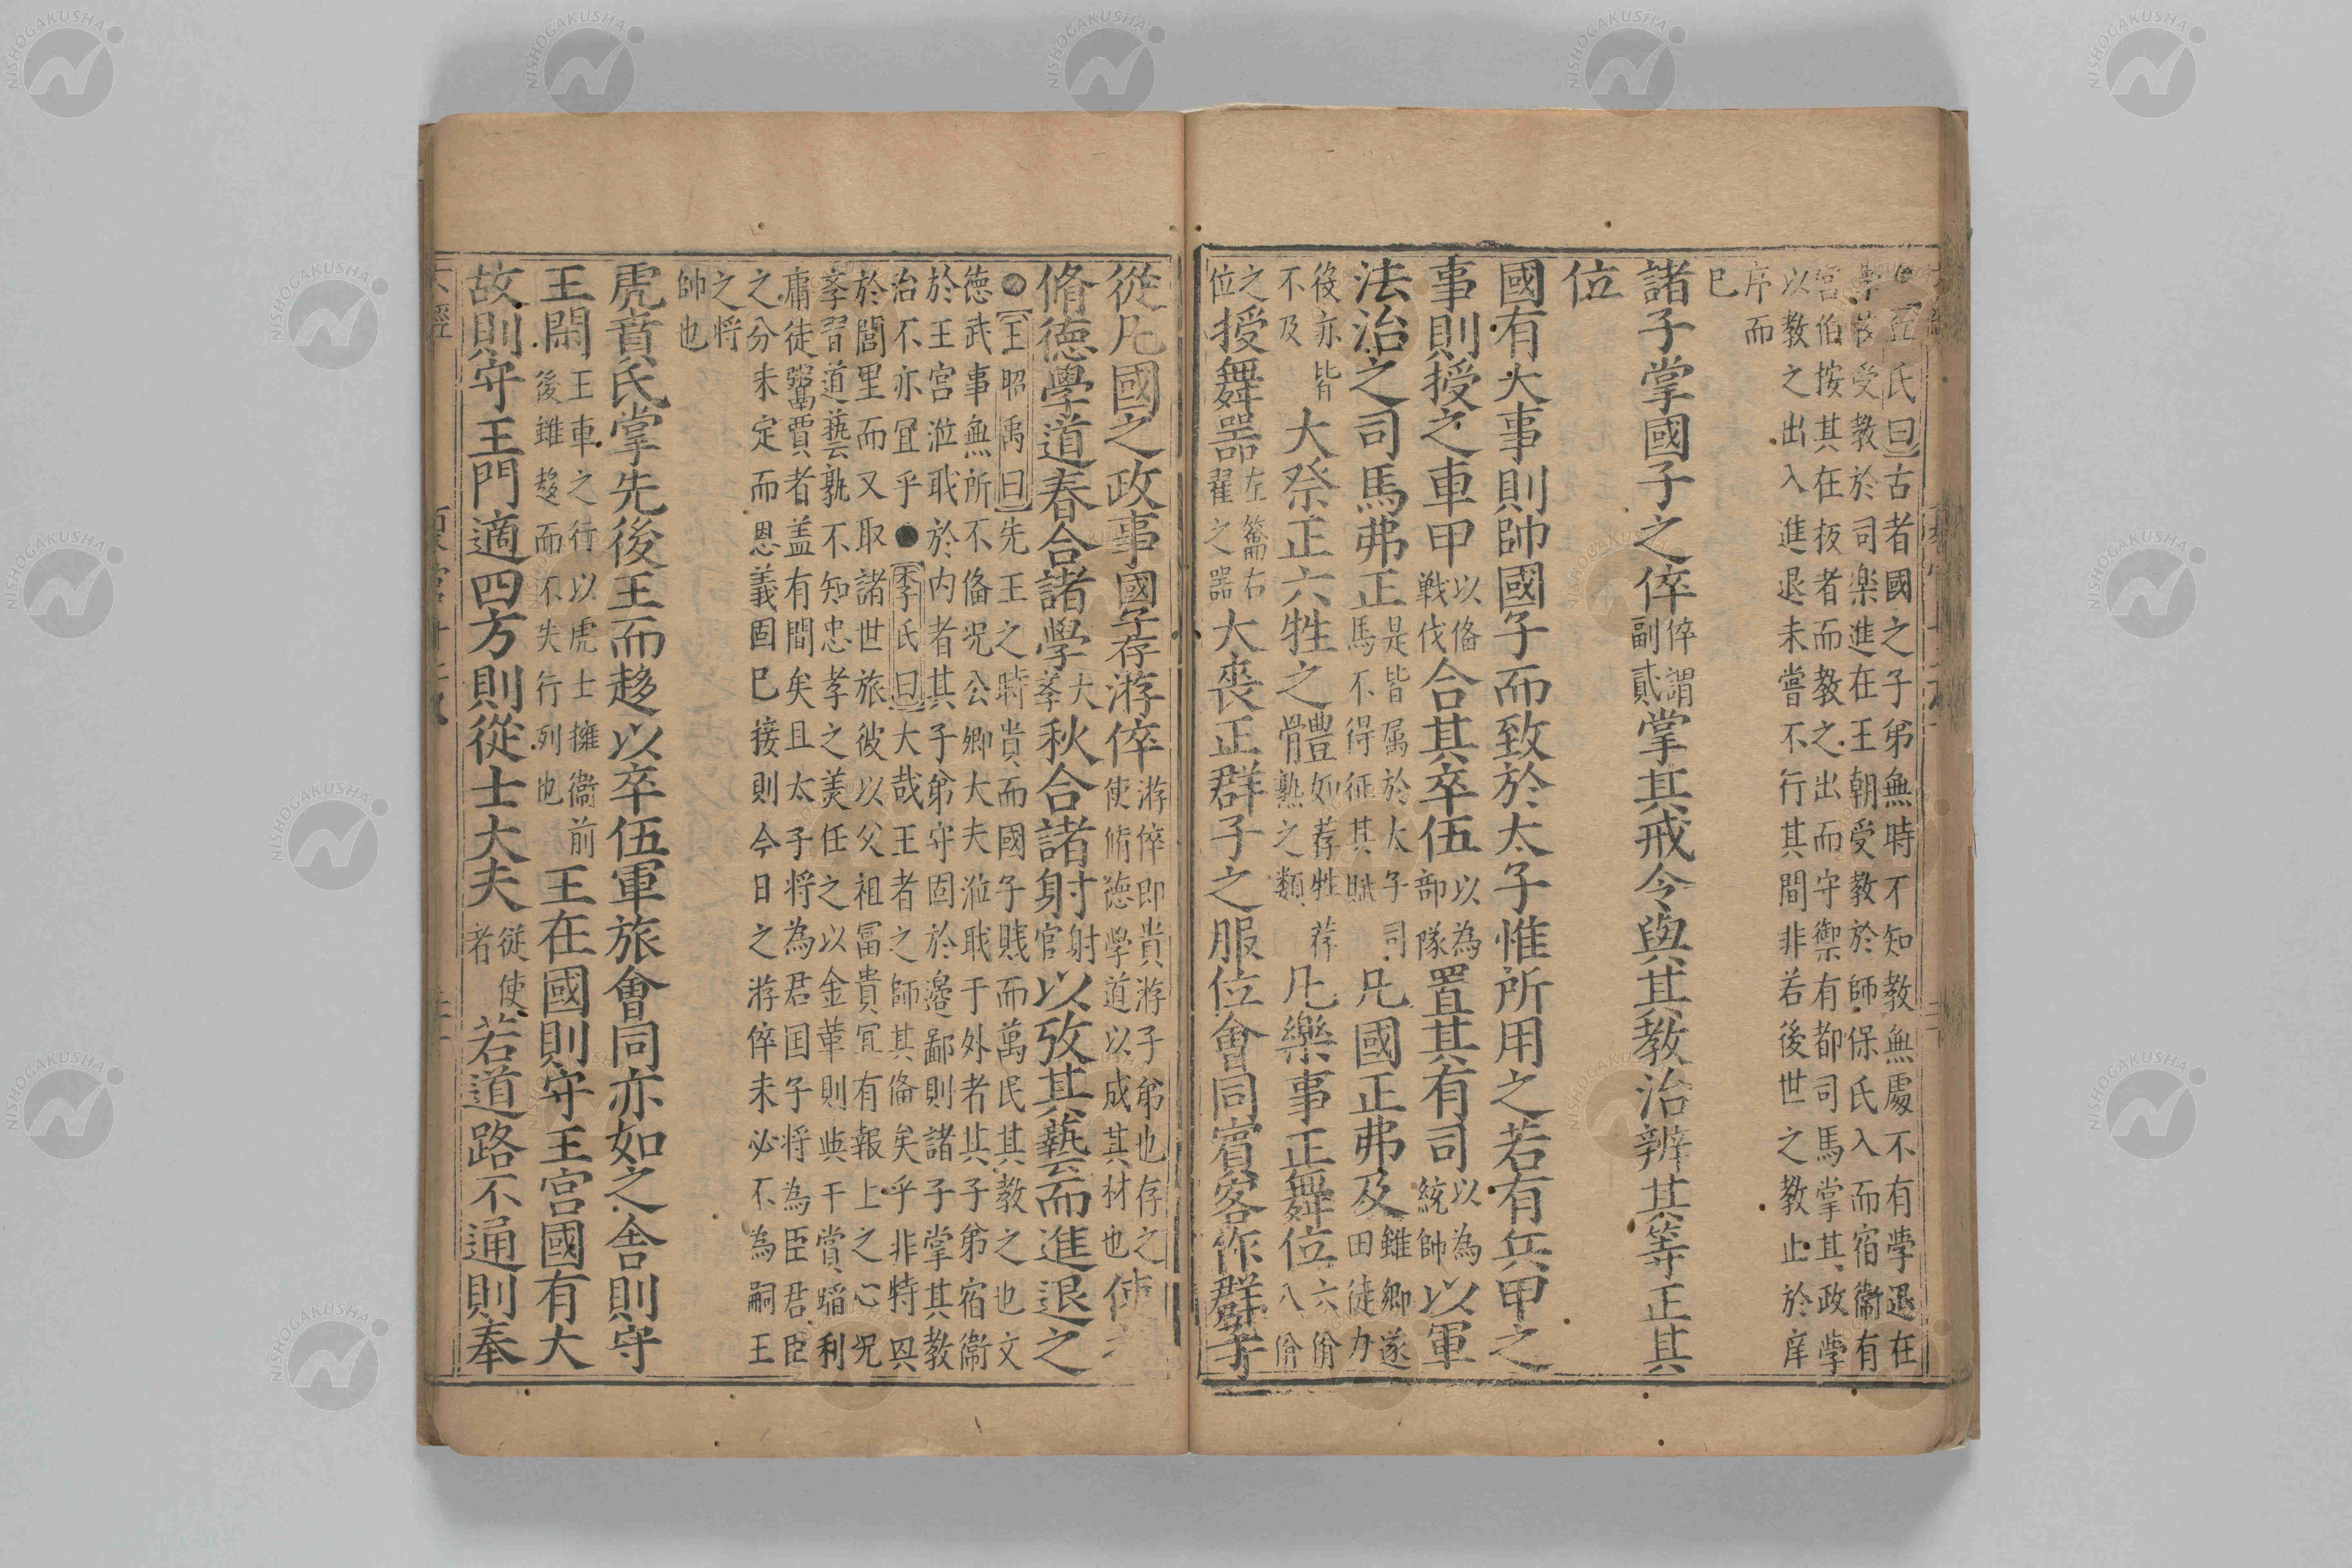 氏曰古者國之子弟無時不知教無處不有學退在
受教於司楽進在王朝受教於師保氏入而宿衛有
宮伯按其在扳者而教之出而守禦有都司馬掌其政學
以教之出入進退未嘗不行其間非若後世之教止於庠
序而
已
諸子掌國子之倅倅謂副貳掌其戒令與其教治辨其等正其
位
國有大事則帥國子而致於太子惟所用之若有兵甲之
事則授之車甲以俻戰伐合其卒伍以為部隊置其有司以為統帥以軍
法治之司馬弗正是皆属於太子司馬不得征其賦凡國正弗及雖卿遂田徒力
後亦皆不及大祭正六牲之體如荐牲荐骨熟之類凡樂事正舞位六佾八佾
之位授舞器左籥右翟之器大喪正群子之服位會同賓客作群子
從凡國之政事國子存游倅游倅即貴游子弟也存之使脩德學道以成其材也使之
脩德學道春合諸學大學秋合諸射射官以攷其藝而進退之
王昭禹曰先王之時貴而國子賤而萬民其教之也文
德武事無所不俻况公卿大夫涖耺于外者其子弟宿衛
於王宮涖耺於内者其子弟守固於邊鄙則諸子掌其教
治不亦冝乎●李氏曰大哉王者之師其俻矣乎非特具
於閭里而又取諸世旅彼以父祖冨貴冝有報上之心况
孝習道藝孰不知忠孝之美任之以金革則與干賞蹈利
庸徒鬻賈者盖有間矣且太子将為君国子将為臣君臣
之分未定而恩義固巳接則今日之游倅未必不為嗣王
之将
帥也
虎賁氏掌先後王而趍以卒伍軍旅會同亦如之舎則守
王閑王車之行以虎士擁衞前後雖趍而不失行列也王在國則守王宮國有大
故則守王門適四方則從士大夫從使者若道路不通則奉